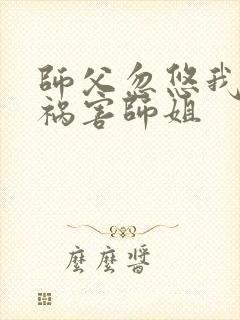 師父忽悠我
祸害師姐
麼麼醬